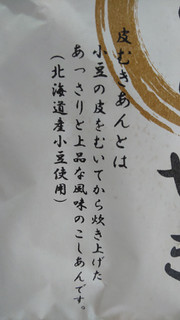 皮むきあんとは
小豆の皮をむいてから炊き上げた
あっさりと上品な風味のこしあんです。
（北海道産小豆使用）